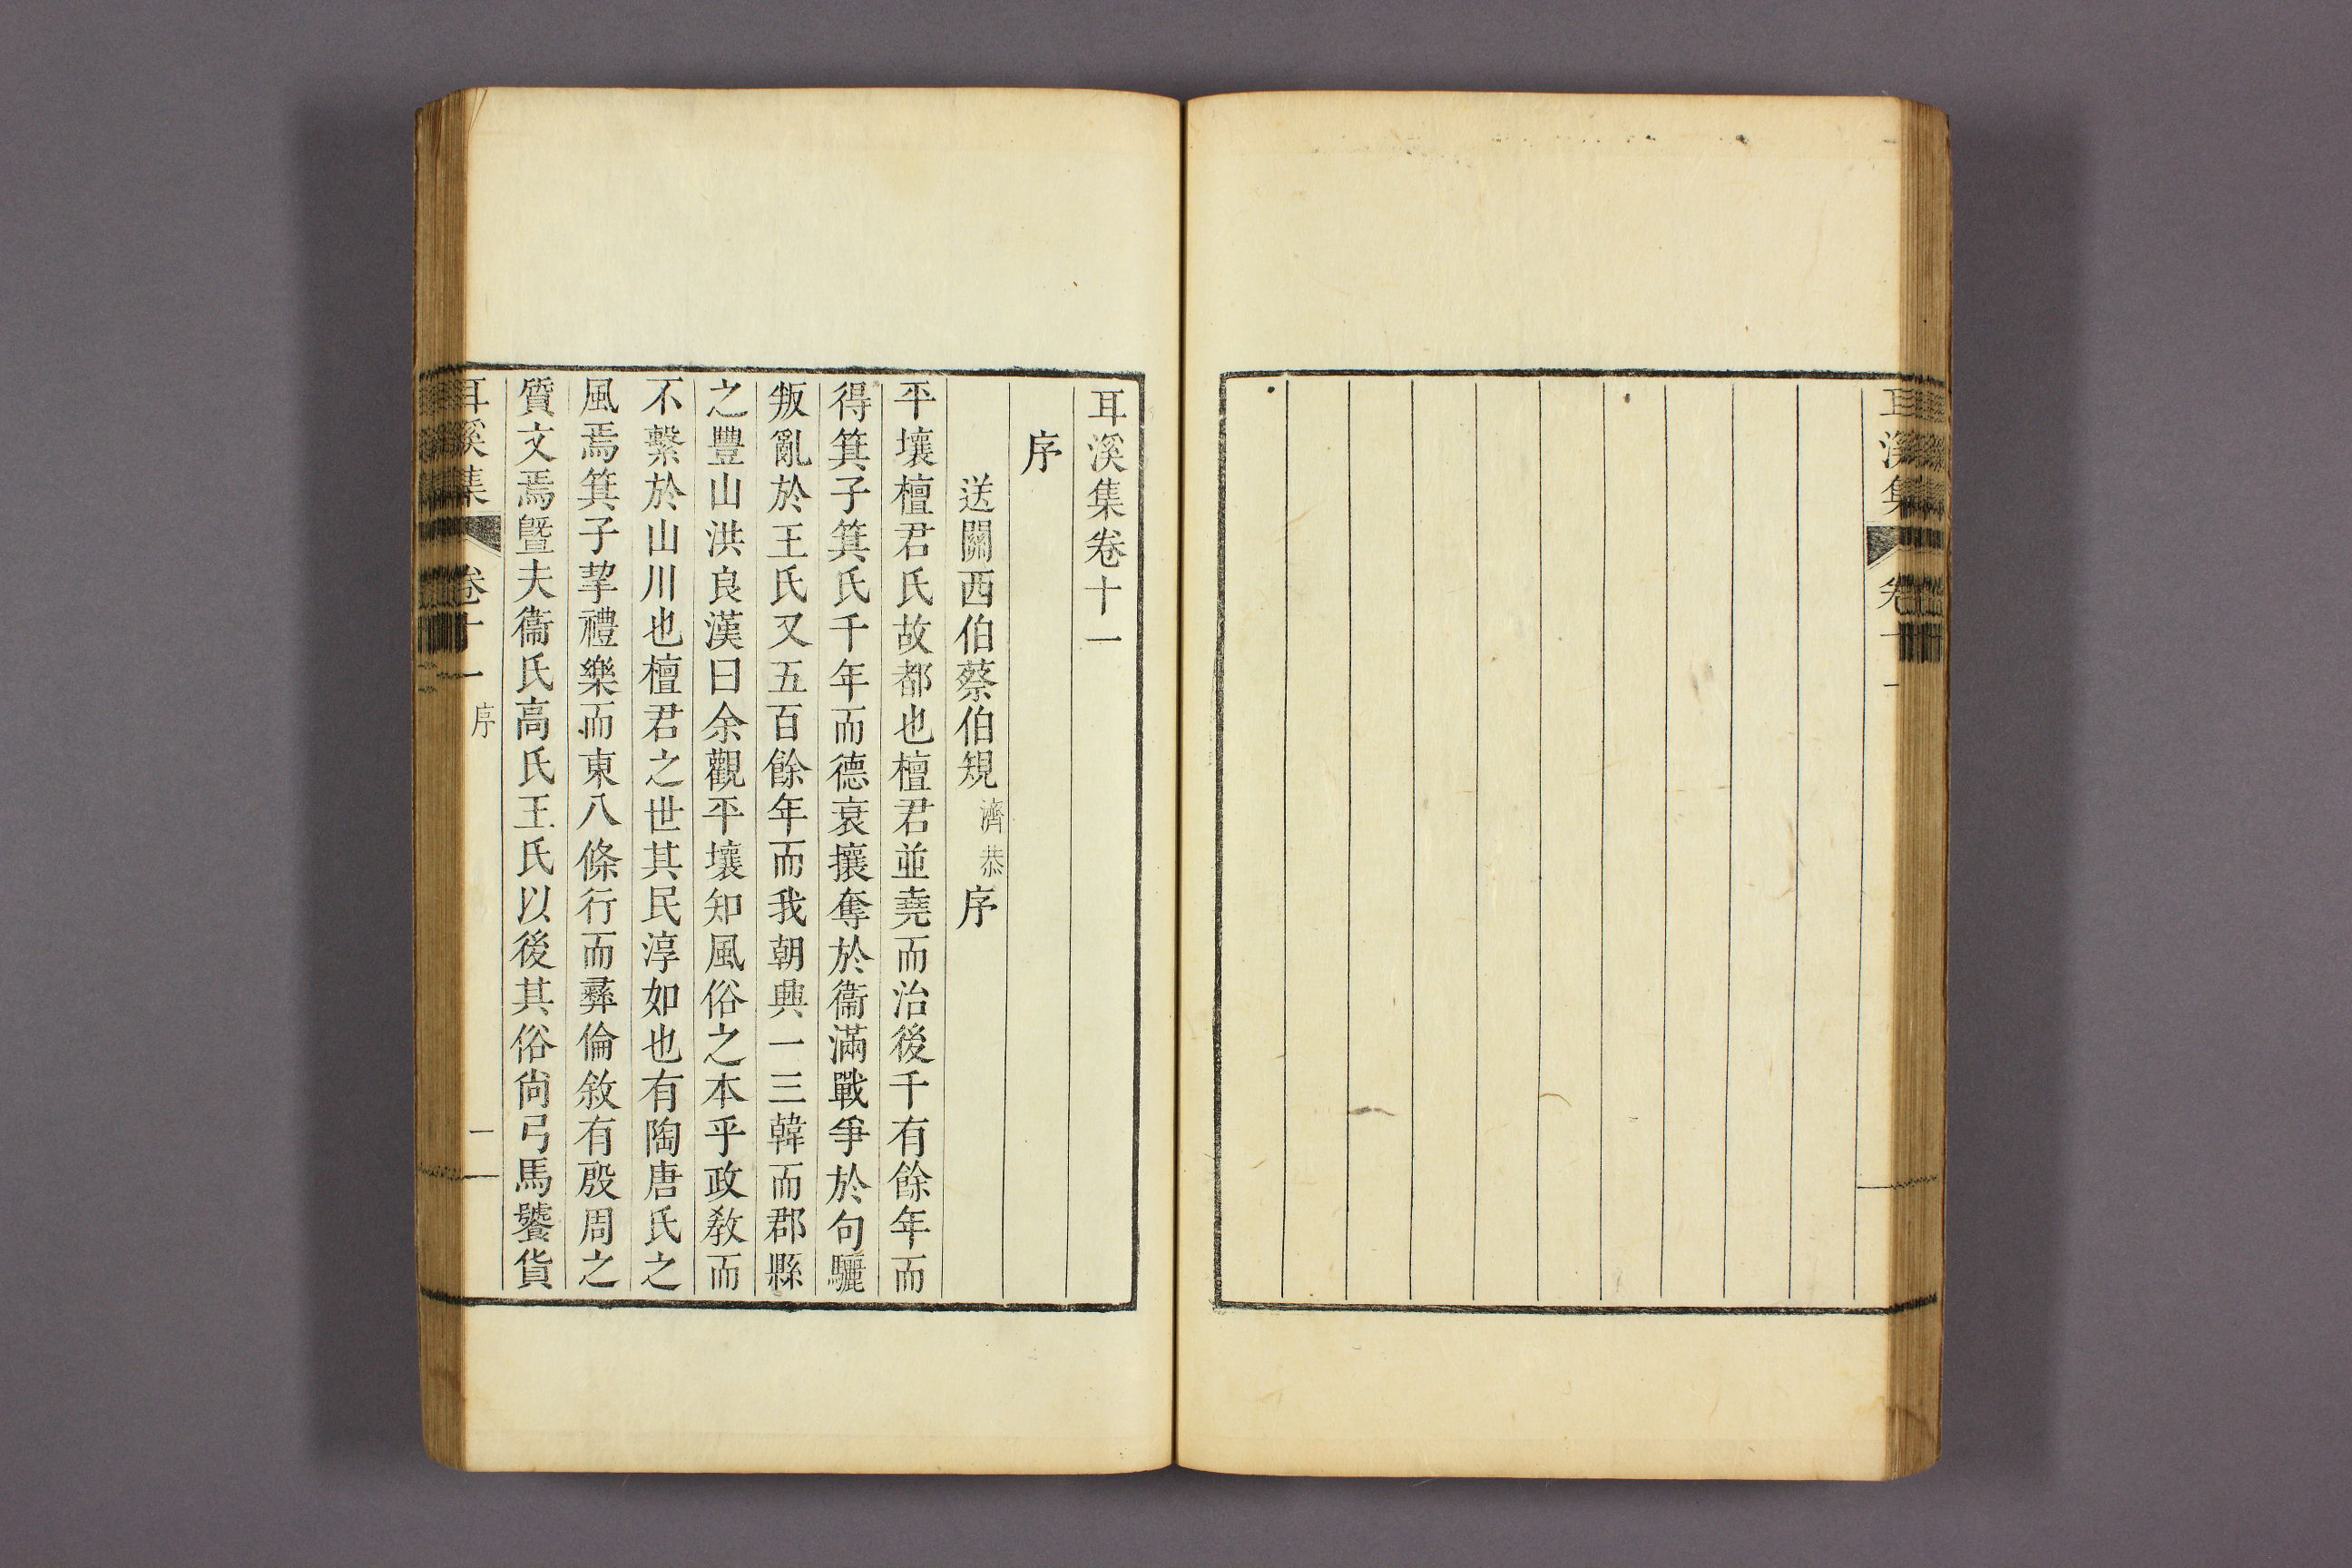 耳溪集卷十一
序
送關西伯蔡伯規濟恭序
平壤檀君氏故都也檀君並堯而治後千有餘年而
得箕子箕氏千年而德衰攘奪於衞滿戰爭於句驪
叛亂於王氏又五百餘年而我朝興一三韓而郡縣
之豐山洪良漢曰余觀平壤知風俗之本乎政敎而
不繫於山川也檀君之世其民淳如也有陶唐氏之
風焉箕子挈禮樂而東八條行而彝倫敘有殷周之
質文焉曁夫衞氏高氏王氏以後其俗尙弓馬饕貨
耳溪集 卷十一 序 一